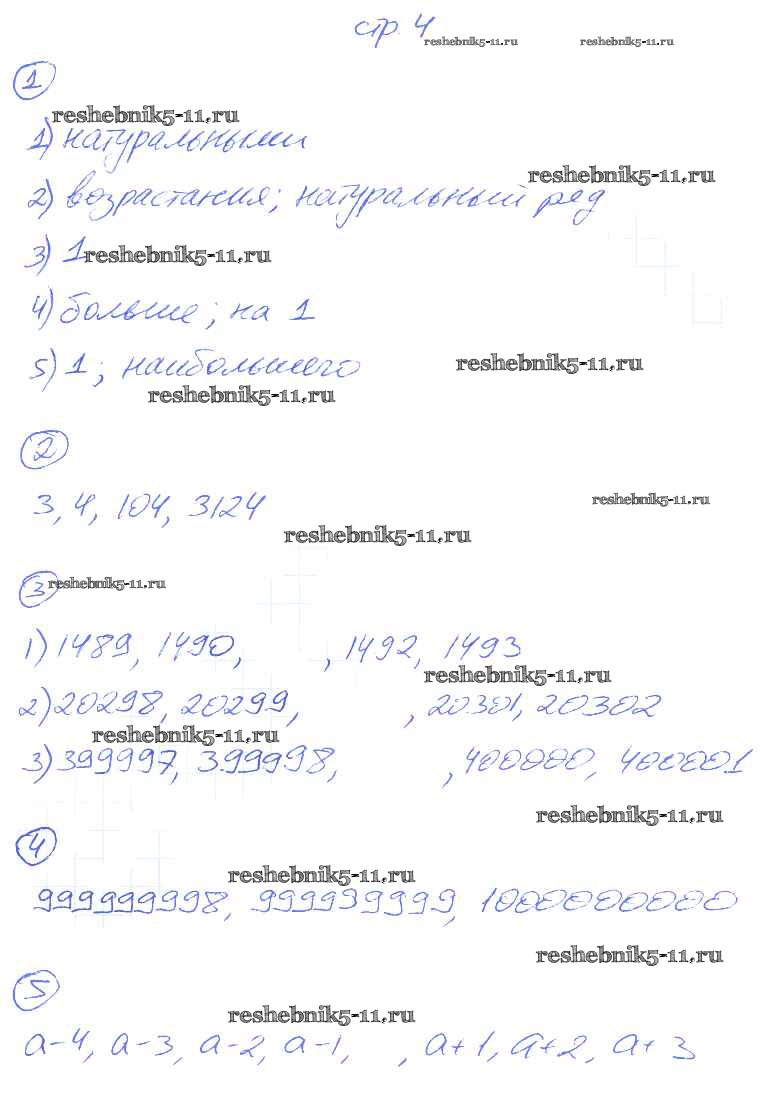 стр. 4
reshebnik5-11.ru reshebnik5-11.ru
1
reshebnik5-11.ru
1) натуральными
reshebnik5-11.ru
2) возрастания; натуральный ряд
3) 1
reshebnik5-11.ru
4) больше; на 1
5) 1; наибольшего
reshebnik5-11.ru
reshebnik5-11.ru
2
3, 4, 104, 3124
reshebnik5-11.ru
reshebnik5-11.ru
3
reshebnik5-11.ru
1) 1489, 1490, , 1492, 1493
reshebnik5-11.ru
2) 20298, 20299, , 20301, 20302
reshebnik5-11.ru
3) 399997, 399998, , 400000, 400001
reshebnik5-11.ru
4
reshebnik5-11.ru
999999998, 999999999, 1000000000
reshebnik5-11.ru
5
reshebnik5-11.ru
a-4, a-3, a-2, a-1, , a+1, a+2, a+3